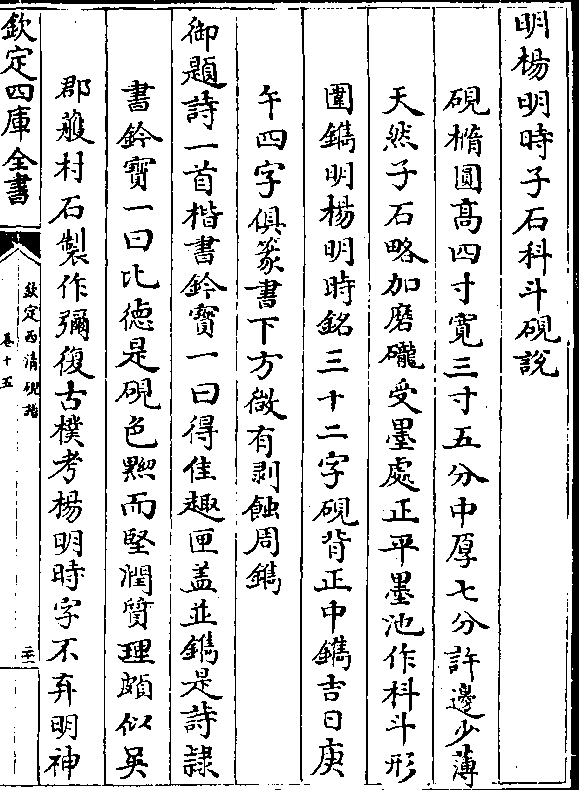 明楊明時子石科斗硯說
硯橢圓髙四寸寛三寸五分中厚七分許邊少薄
天然子石略加磨礲受墨處正平墨池作科斗形
圍鐫明楊明時銘三十二字硯背正中鐫吉日庚
午四字俱篆書下方微有剥蝕周鐫
御題詩一首楷書鈐寳一曰得佳趣匣葢並鐫是詩隷
書鈐寳一曰比徳是硯色黝而堅潤質理頗似吳
郡蠖村石製作彌復古樸考楊明時字不弃明神
欽定四庫全書
欽定西清硯譜
卷十五
二十一